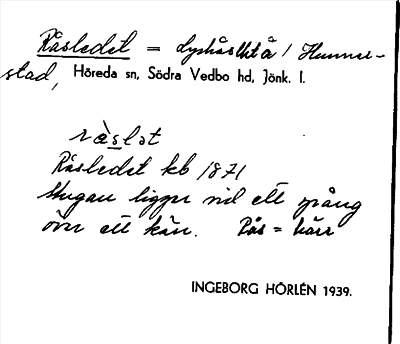 Råsledet = Lyshåslhtå / Hunnar-
stad, Höreda sn, Södra Vedbo hd, Jönk. l.
ràslət
Råsledet kb 1871
Stugan ligger vid ett spång
över ett kärr. Rås = kärr
INGEBORG HÖRLÉN 1939.